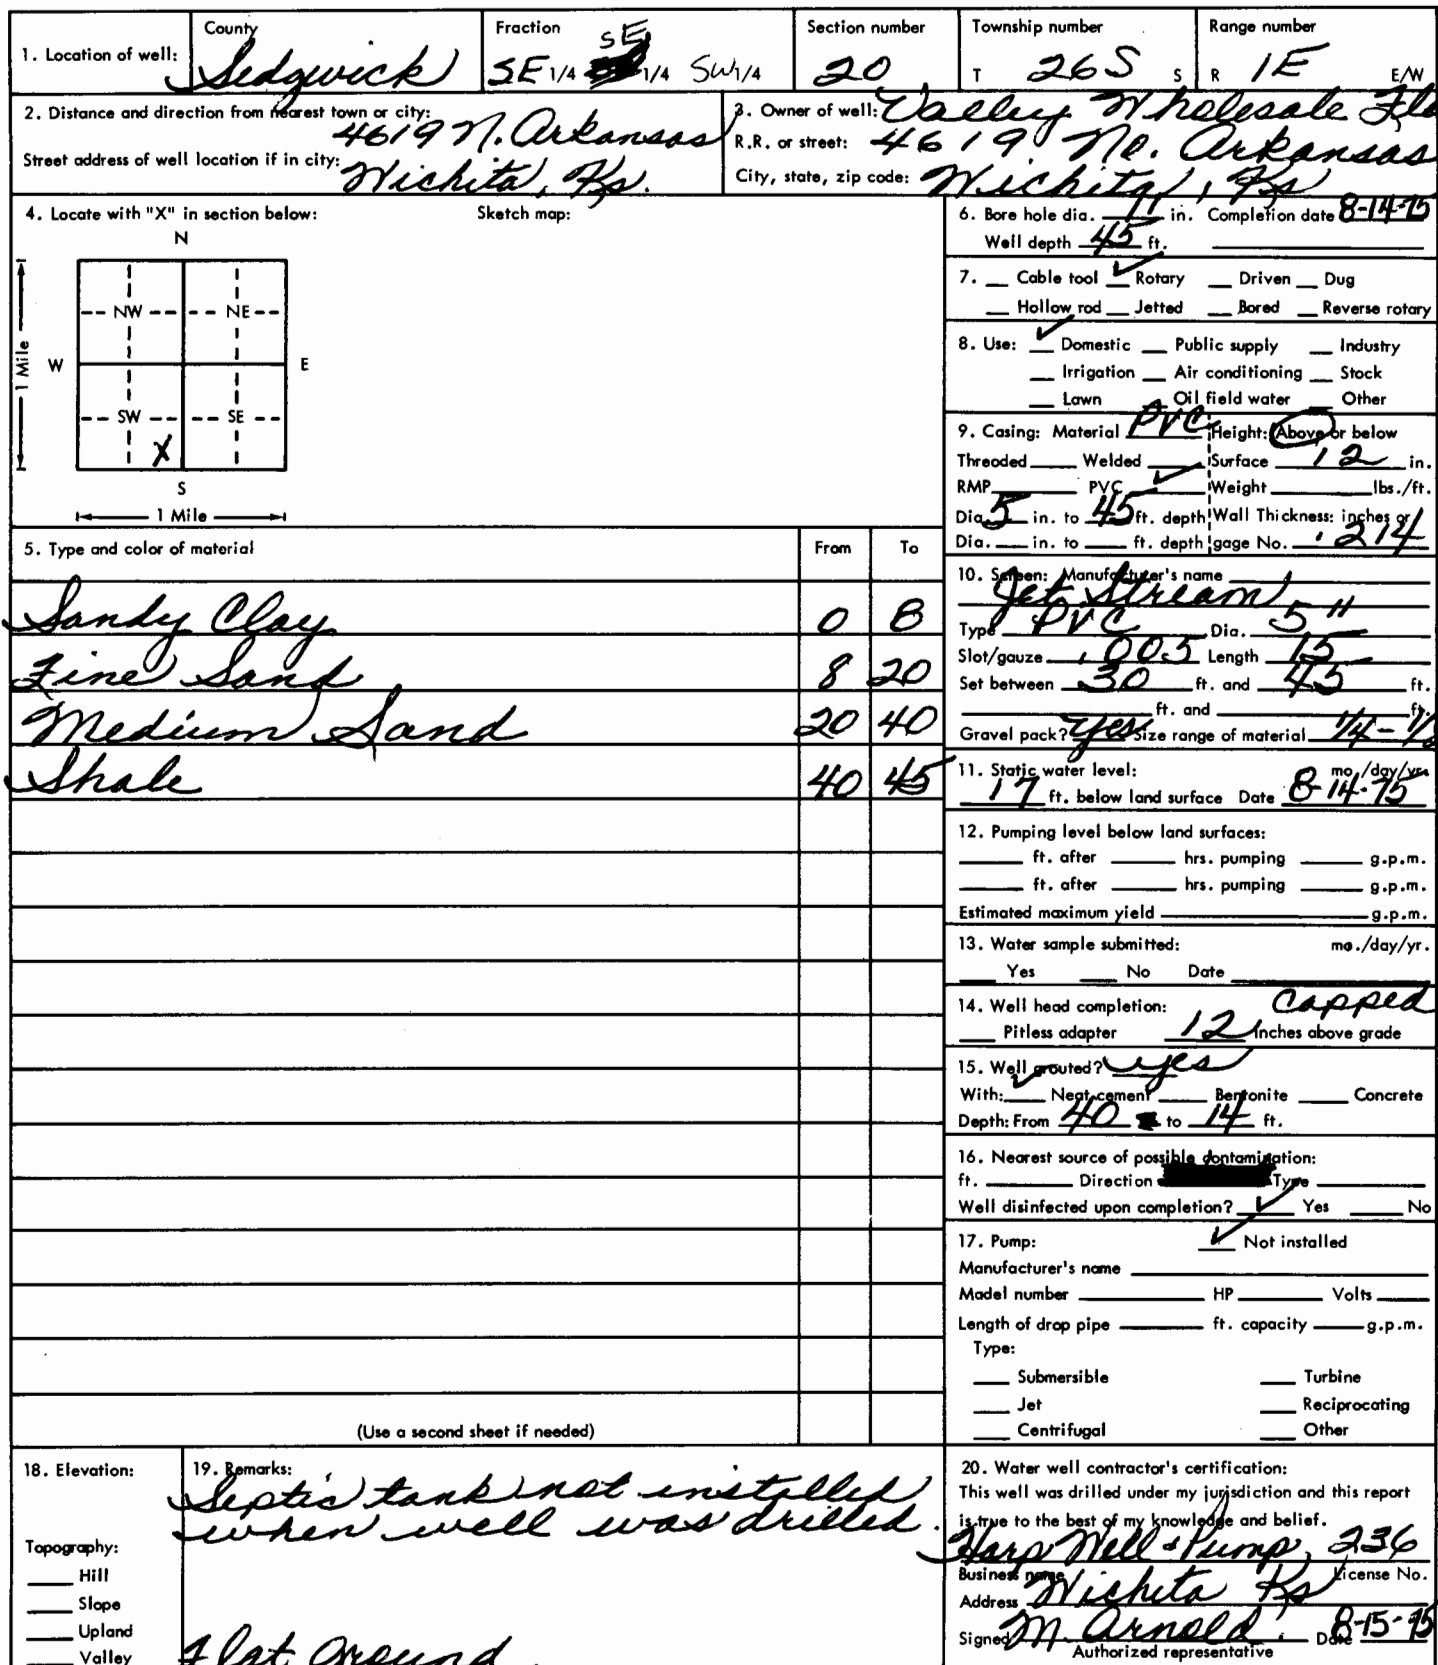 1. Location of well: County Sedgwick Fraction SE 1/4 SE 1/4 SW 1/4 Section number 20 Township number T 26S S Range number R 1E E/W
2. Distance and direction from nearest town or city: 4619 N. Arkansas
Street address of well location if in city: Wichita, Ks.
3. Owner of well: Valley Wholesale Flo
R.R. or street: 4619 No. Arkansas
City, state, zip code: Wichita, Ks
4. Locate with "X" in section below: Sketch map:
N
NW NE
W E
1 Mile
SW SE
X
S
1 Mile
5. Type and color of material From To
Sandy Clay 0 8
Fine Sand 8 20
Medium Sand 20 40
Shale 40 45
(Use a second sheet if needed)
6. Bore hole dia. 11 in. Completion date 8-14-75
Well depth 45 ft.
7. Cable tool ✓ Rotary Driven Dug
Hollow rod Jetted Bored Reverse rotary
8. Use: ✓ Domestic Public supply Industry
Irrigation Air conditioning Stock
Lawn Oil field water Other
9. Casing: Material PVC Height: Above or below
Threaded Welded Surface 12 in.
RMP PVC ✓ Weight lbs./ft.
Dia. 5 in. to 45 ft. depth Wall Thickness: inches or
Dia. in. to ft. depth gage No. .214
10. Screen: Manufacturer's name
Jet Stream
Type PVC Dia. 5"
Slot/gauze .005 Length 15
Set between 30 ft. and 45 ft.
ft. and ft.
Gravel pack? yes Size range of material 1/4 - 1/
11. Static water level: mo./day/yr.
17 ft. below land surface Date 8-14-75
12. Pumping level below land surfaces:
ft. after hrs. pumping g.p.m.
ft. after hrs. pumping g.p.m.
Estimated maximum yield g.p.m.
13. Water sample submitted: mo./day/yr.
Yes No Date
14. Well head completion: Capped
Pitless adapter 12 Inches above grade
15. Well grouted? yes
With: ✓ Neat cement Bentonite Concrete
Depth: From 40 to 14 ft.
16. Nearest source of possible contamination:
ft. Direction Type
Well disinfected upon completion? ✓ Yes No
17. Pump: ✓ Not installed
Manufacturer's name
Model number HP Volts
Length of drop pipe ft. capacity g.p.m.
Type:
Submersible Turbine
Jet Reciprocating
Centrifugal Other
18. Elevation:
Topography:
Hill
Slope
Upland
Valley
19. Remarks:
Septic tank not installed
when well was drilled.
Flat ground.
20. Water well contractor's certification:
This well was drilled under my jurisdiction and this report
is true to the best of my knowledge and belief.
Harp Well & Pump, 236
Business name License No.
Address Wichita Ks
Signed M. Arnold Date 8-15-75
Authorized representative